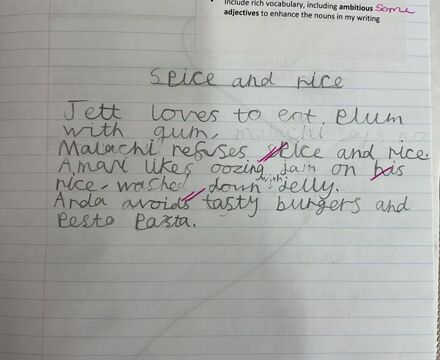 Include rich vocabulary, including ambitious some
adjectives to enhance the nouns in my writing
Spice and rice
Jett loves to eat. Plum
with gum,
Malachi refuses spice and rice.
Amari likes oozing jam on his
rice, washed down with jelly.
Arda avoids tasty burgers and
Pesto Pasta.